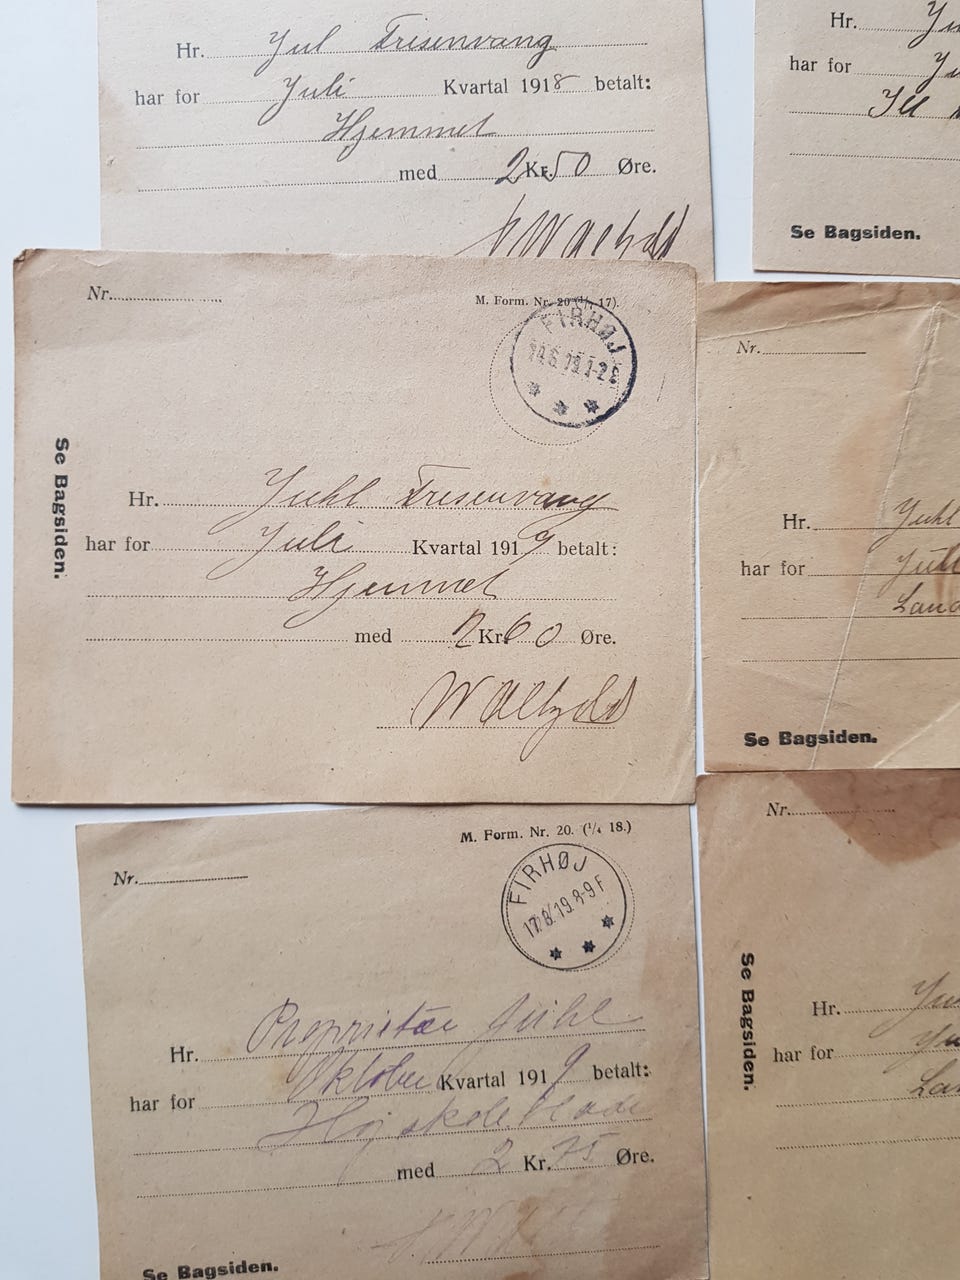 Hr. Jul Frisenvang
har for Juli Kvartal 1918 betalt:
Hjemmet
med 2 Kr. 50 Øre.
Hr.
har for
Ill
Se Bagsiden.
Nr.
M. Form. Nr. 20 (1/4 17).
FIRHØJ
14.6.19.1-2 E
Se Bagsiden.
Hr. Juhl Frisenvang
har for Juli Kvartal 1919 betalt:
Hjemmet
med 2 Kr. 60 Øre.
Nr.
Hr. Juhl
har for
Se Bagsiden.
M. Form. Nr. 20. (1/4 18.)
Nr.
FIRHØJ
17.8.19.8-9 F
Hr. Proprietær Juhl
har for Oktober Kvartal 1919 betalt:
Højskolebladet
med 2 Kr. 75 Øre.
Se Bagsiden.
Nr.
Se Bagsiden.
Hr.
har for